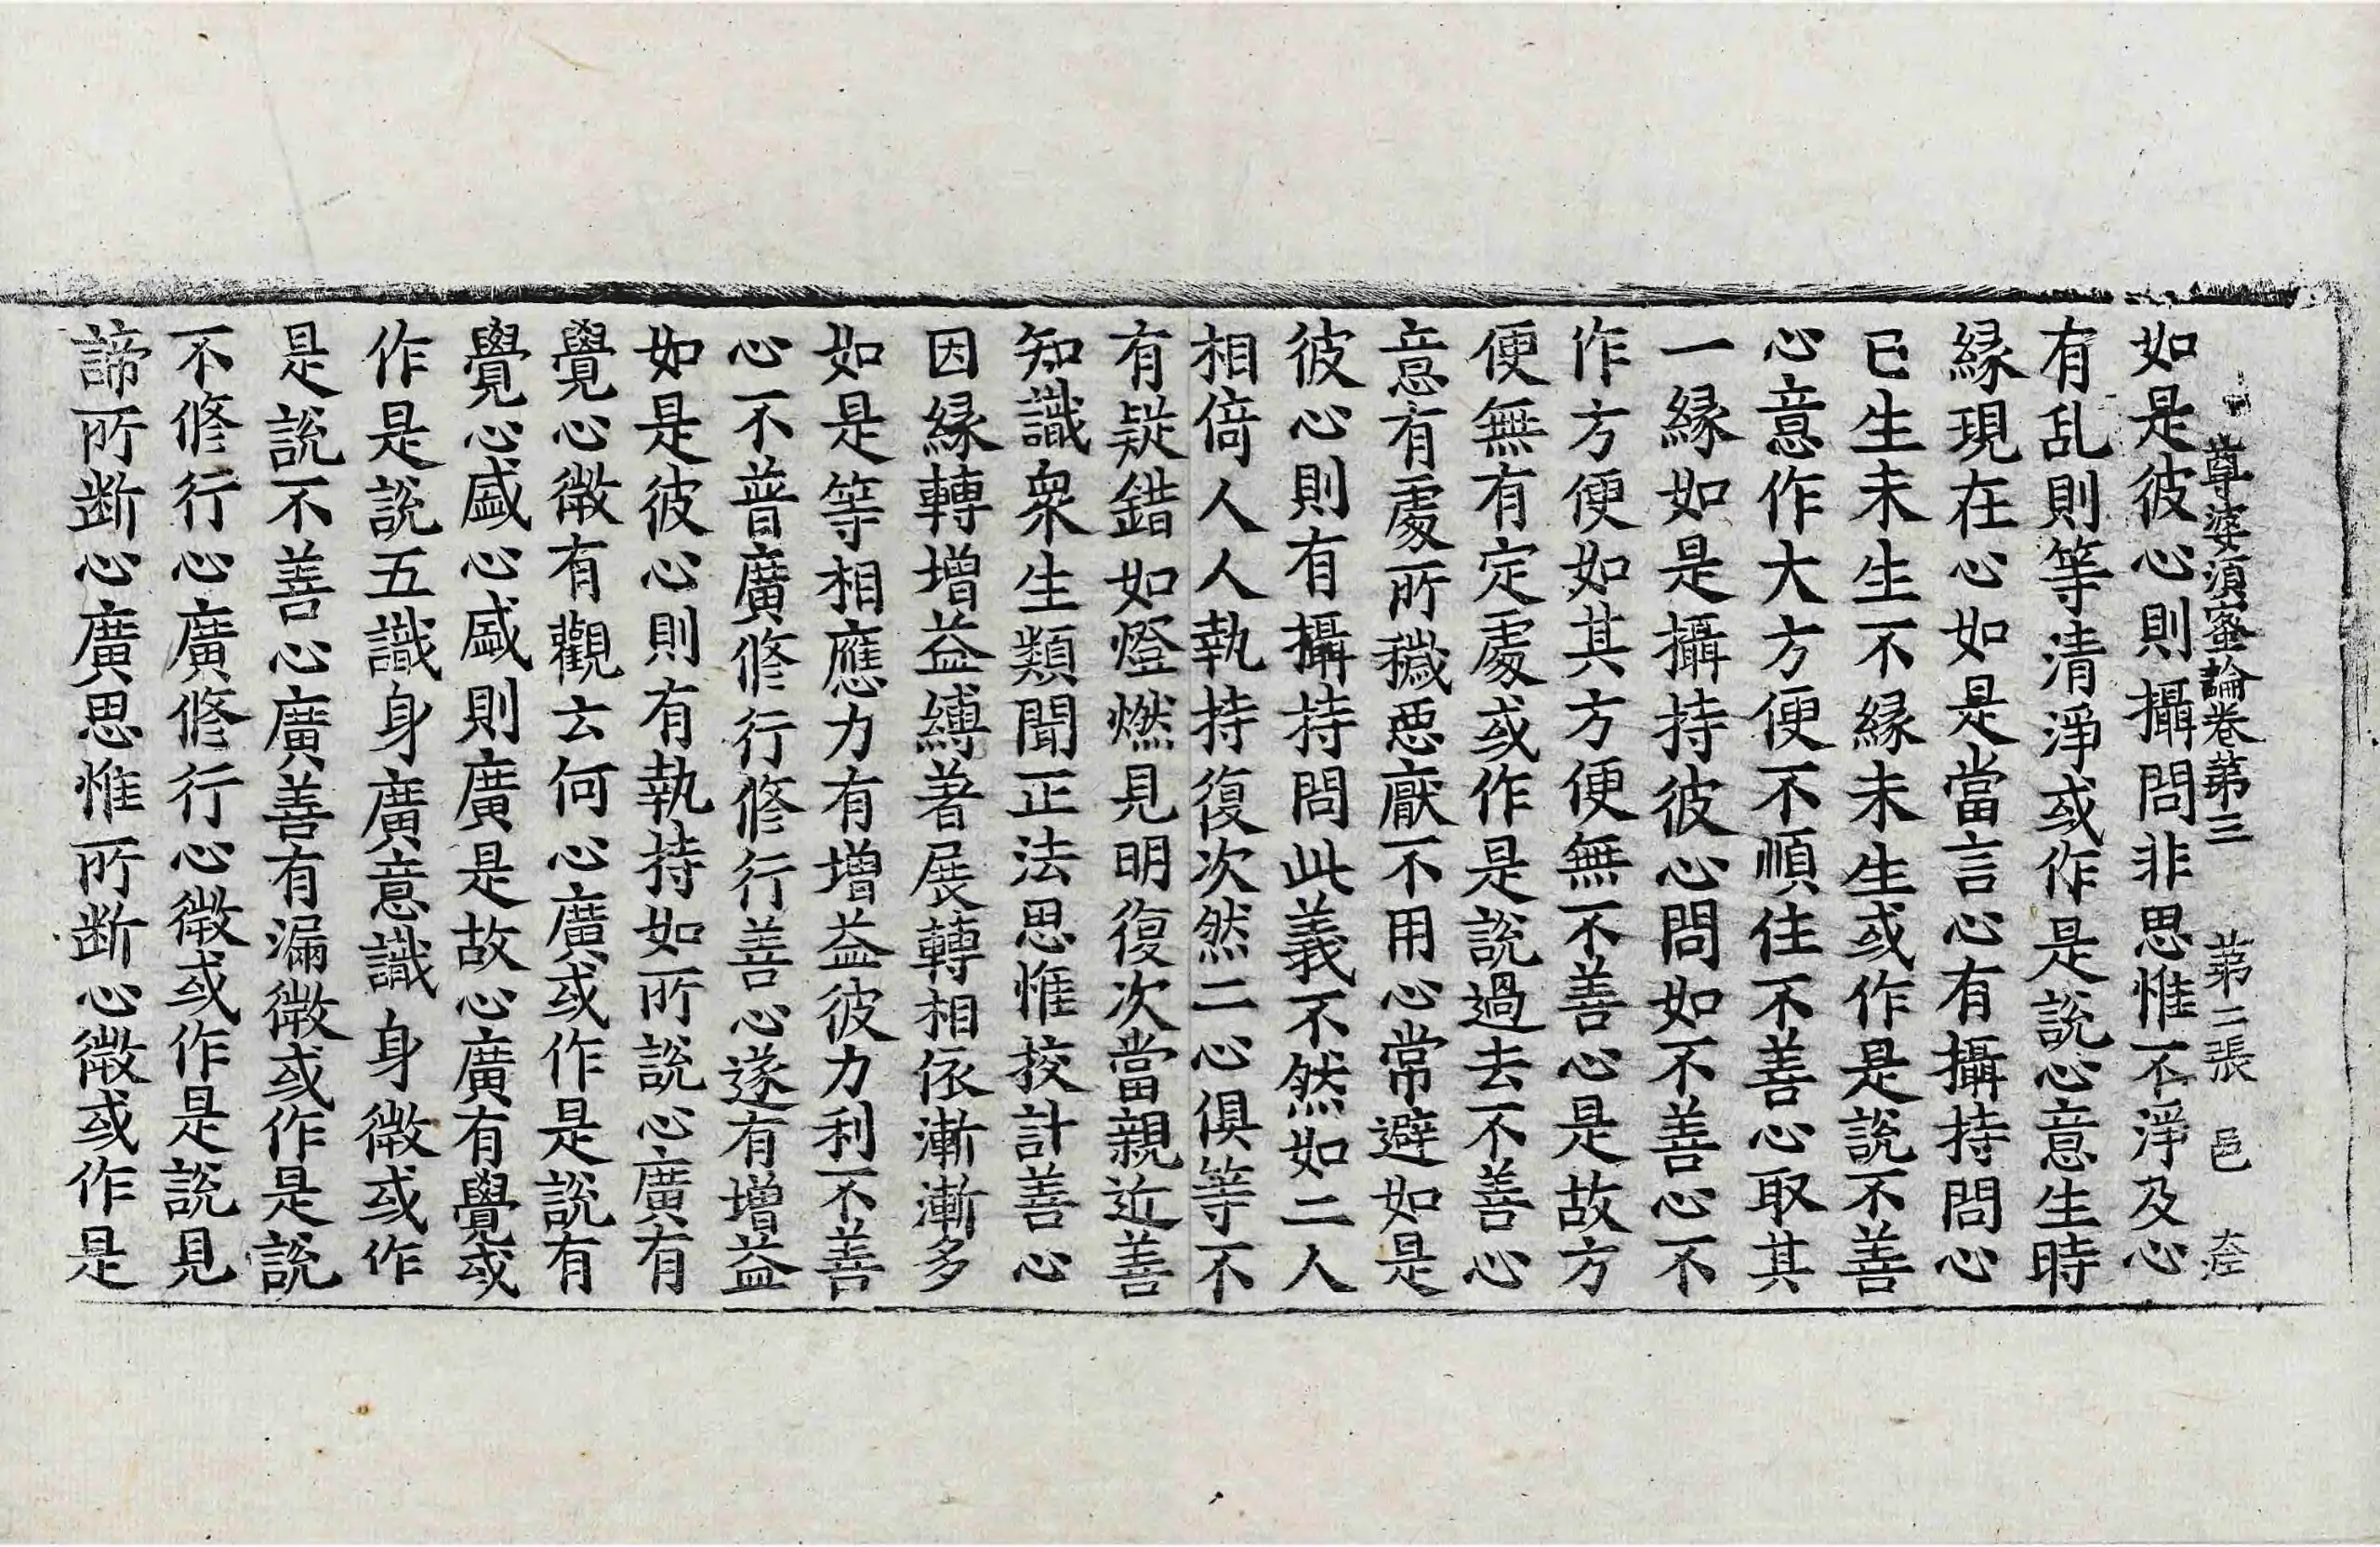 尊婆須蜜論卷第三 第二張 邑
如是彼心則攝問非思惟不淨及心
有乱則等清淨或作是說心意生時
緣現在心如是當言心有攝持問心
已生未生不緣未生或作是說不善
心意作大方便不順住不善心取其
一緣如是攝持彼心問如不善心不
作方便如其方便無不善心是故方
便無有定處或作是說過去不善心
意有處所穢惡厭不用心常避如是
彼心則有攝持問此義不然如二人
相倚人人執持復次然二心俱等不
有疑錯如燈燃見明復次當親近善
知識衆生類聞正法思惟挍計善心
因緣轉增益縛著展轉相依漸漸多
如是等相應力有增益彼力利不善
心不普廣修行修行善心遂有增益
如是彼心則有執持如所說心廣有
覺心微有觀云何心廣或作是說有
覺心盛心盛則廣是故心廣有覺或
作是說五識身廣意識身微或作
是說不善心廣善有漏微或作是說
不修行心廣修行心微或作是說見
諦所断心廣思惟所断心微或作是